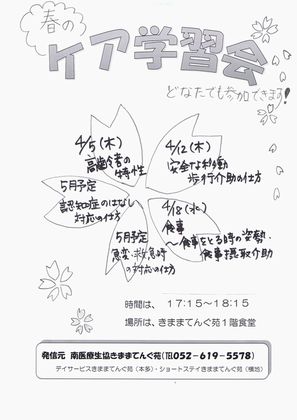 春の
ケア学習会
どなたでも参加できます！
4/5(木)
高齢者の
特性
4/12(木)
安全な移動
歩行介助の仕方
5月予定
認知症のはなし
対応の仕方
4/18(水)
食事
～食事をとる時の姿勢・
食事摂取介助
5月予定
急変・救急時
の対応の仕方
時間は、 17:15～18:15
場所は、きままてんぐ苑1階食堂
発信元 南医療生協きままてんぐ苑(TEL052-619-5578)
デイサービスきままてんぐ苑(本多)・ショートステイきままてんぐ苑(横地)